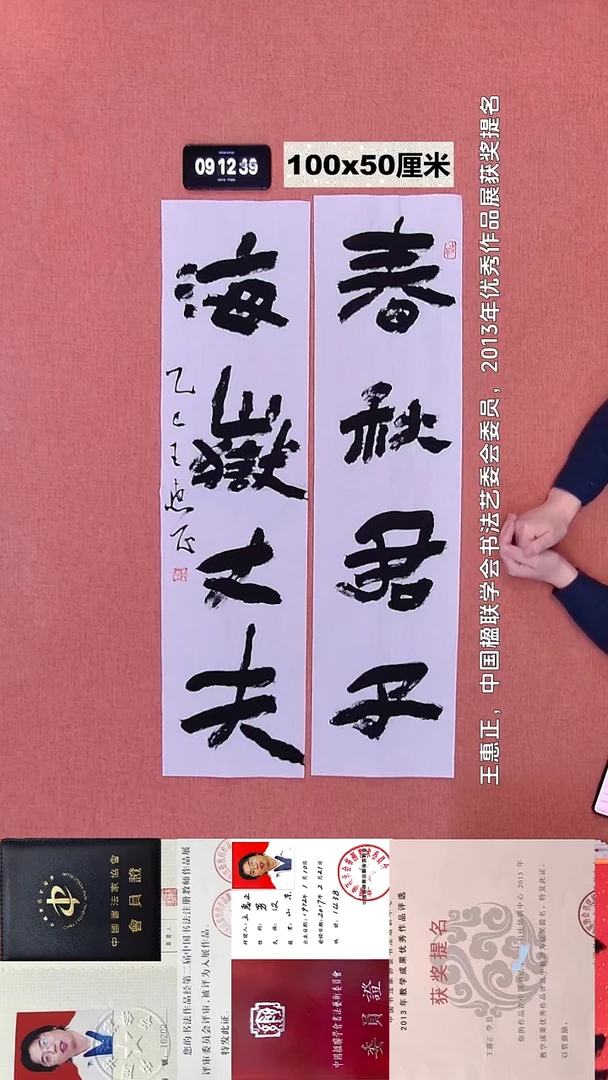 09 12 39
100x50厘米
春秋君子
海嶽丈夫
乙巳王惠正
王惠正，中国楹联学会书法艺委会委员，2013年优秀作品展获奖提名
中國書法家協會
會員證
您的书法作品经第二届中国书法注册教师作品展
评审委员会评审，被评为入展作品。
特发此证
中国楹聯學會書法藝術委員會
委員證
2013年教学成果优秀作品评选
获奖提名